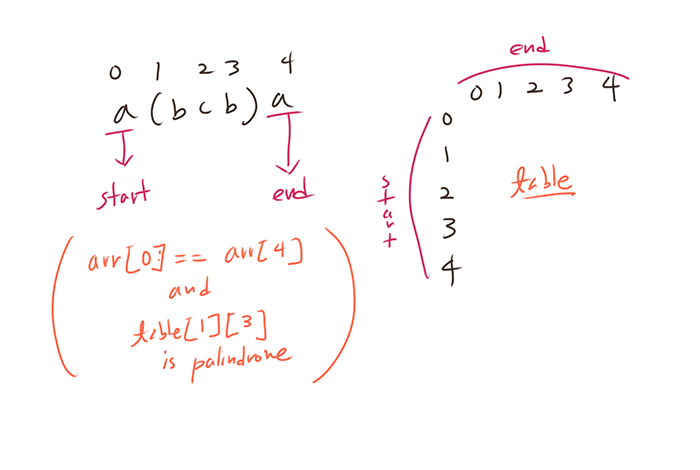 0 1 2 3 4
a (b c b) a
start end
arr[0] == arr[4]
and
table[1][3]
is palindrone
end
0 1 2 3 4
start
0
1
2
3
4
table